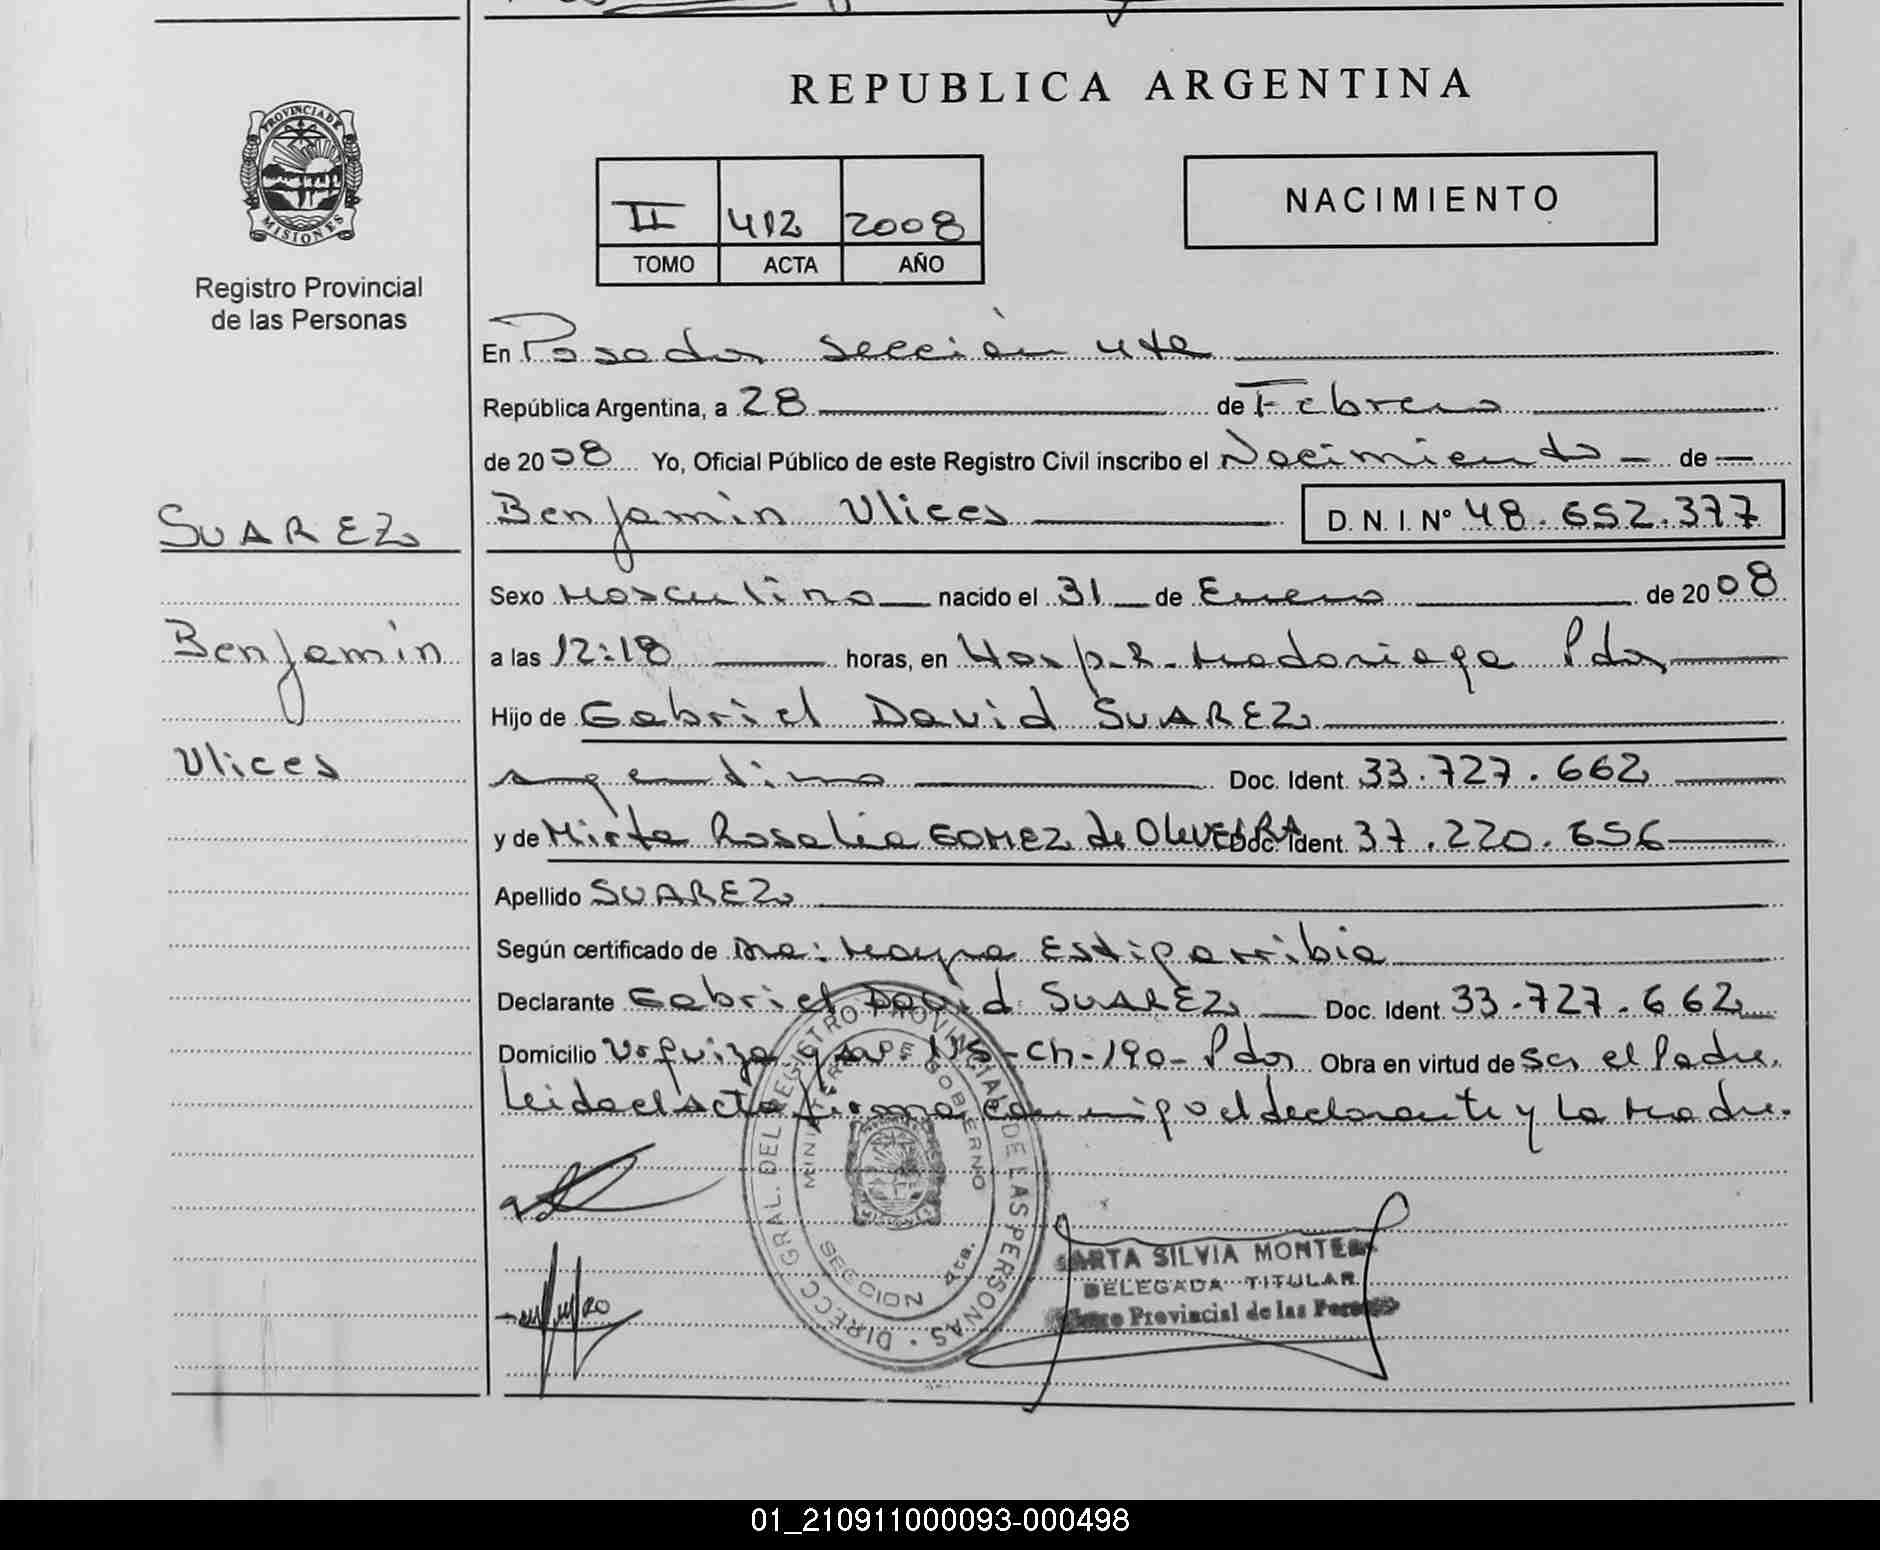 REPUBLICA ARGENTINA
PROVINCIA DE
MISIONES
Registro Provincial
de las Personas
II 412 2008
TOMO ACTA AÑO
NACIMIENTO
En Posadas sección 4ta
República Argentina, a 28 de Febrero
de 2008 Yo, Oficial Público de este Registro Civil inscribo el Nacimiento de
Benjamin Ulices D. N. I. Nº 48.652.377
SUAREZ
Benjamin
Ulices
Sexo Masculino nacido el 31 de Enero de 2008
a las 12:18 horas, en Hosp. R. Madariaga Pdas
Hijo de Gabriel David SUAREZ
argentino Doc. Ident. 33.727.662
y de Mirta Rosalia GOMEZ de OLIVEIRA Doc. Ident. 37.220.656
Apellido SUAREZ
Según certificado de Dra: Mayra Estigarribia
Declarante Gabriel David SUAREZ Doc. Ident 33.727.662
Domicilio Urquiza y 115-Ch-190-Pdas Obra en virtud de Ser el Padre.
Leida el Acta firma conmigo el declarante y La Madre.
DIRECC. GRAL. DEL REGISTRO PROVINCIAL DE LAS PERSONAS
MINISTERIO DE GOBIERNO
SECCION 4ta.
ARTA SILVIA MONTE
DELEGADA TITULAR
Provincial de las
01_210911000093-000498